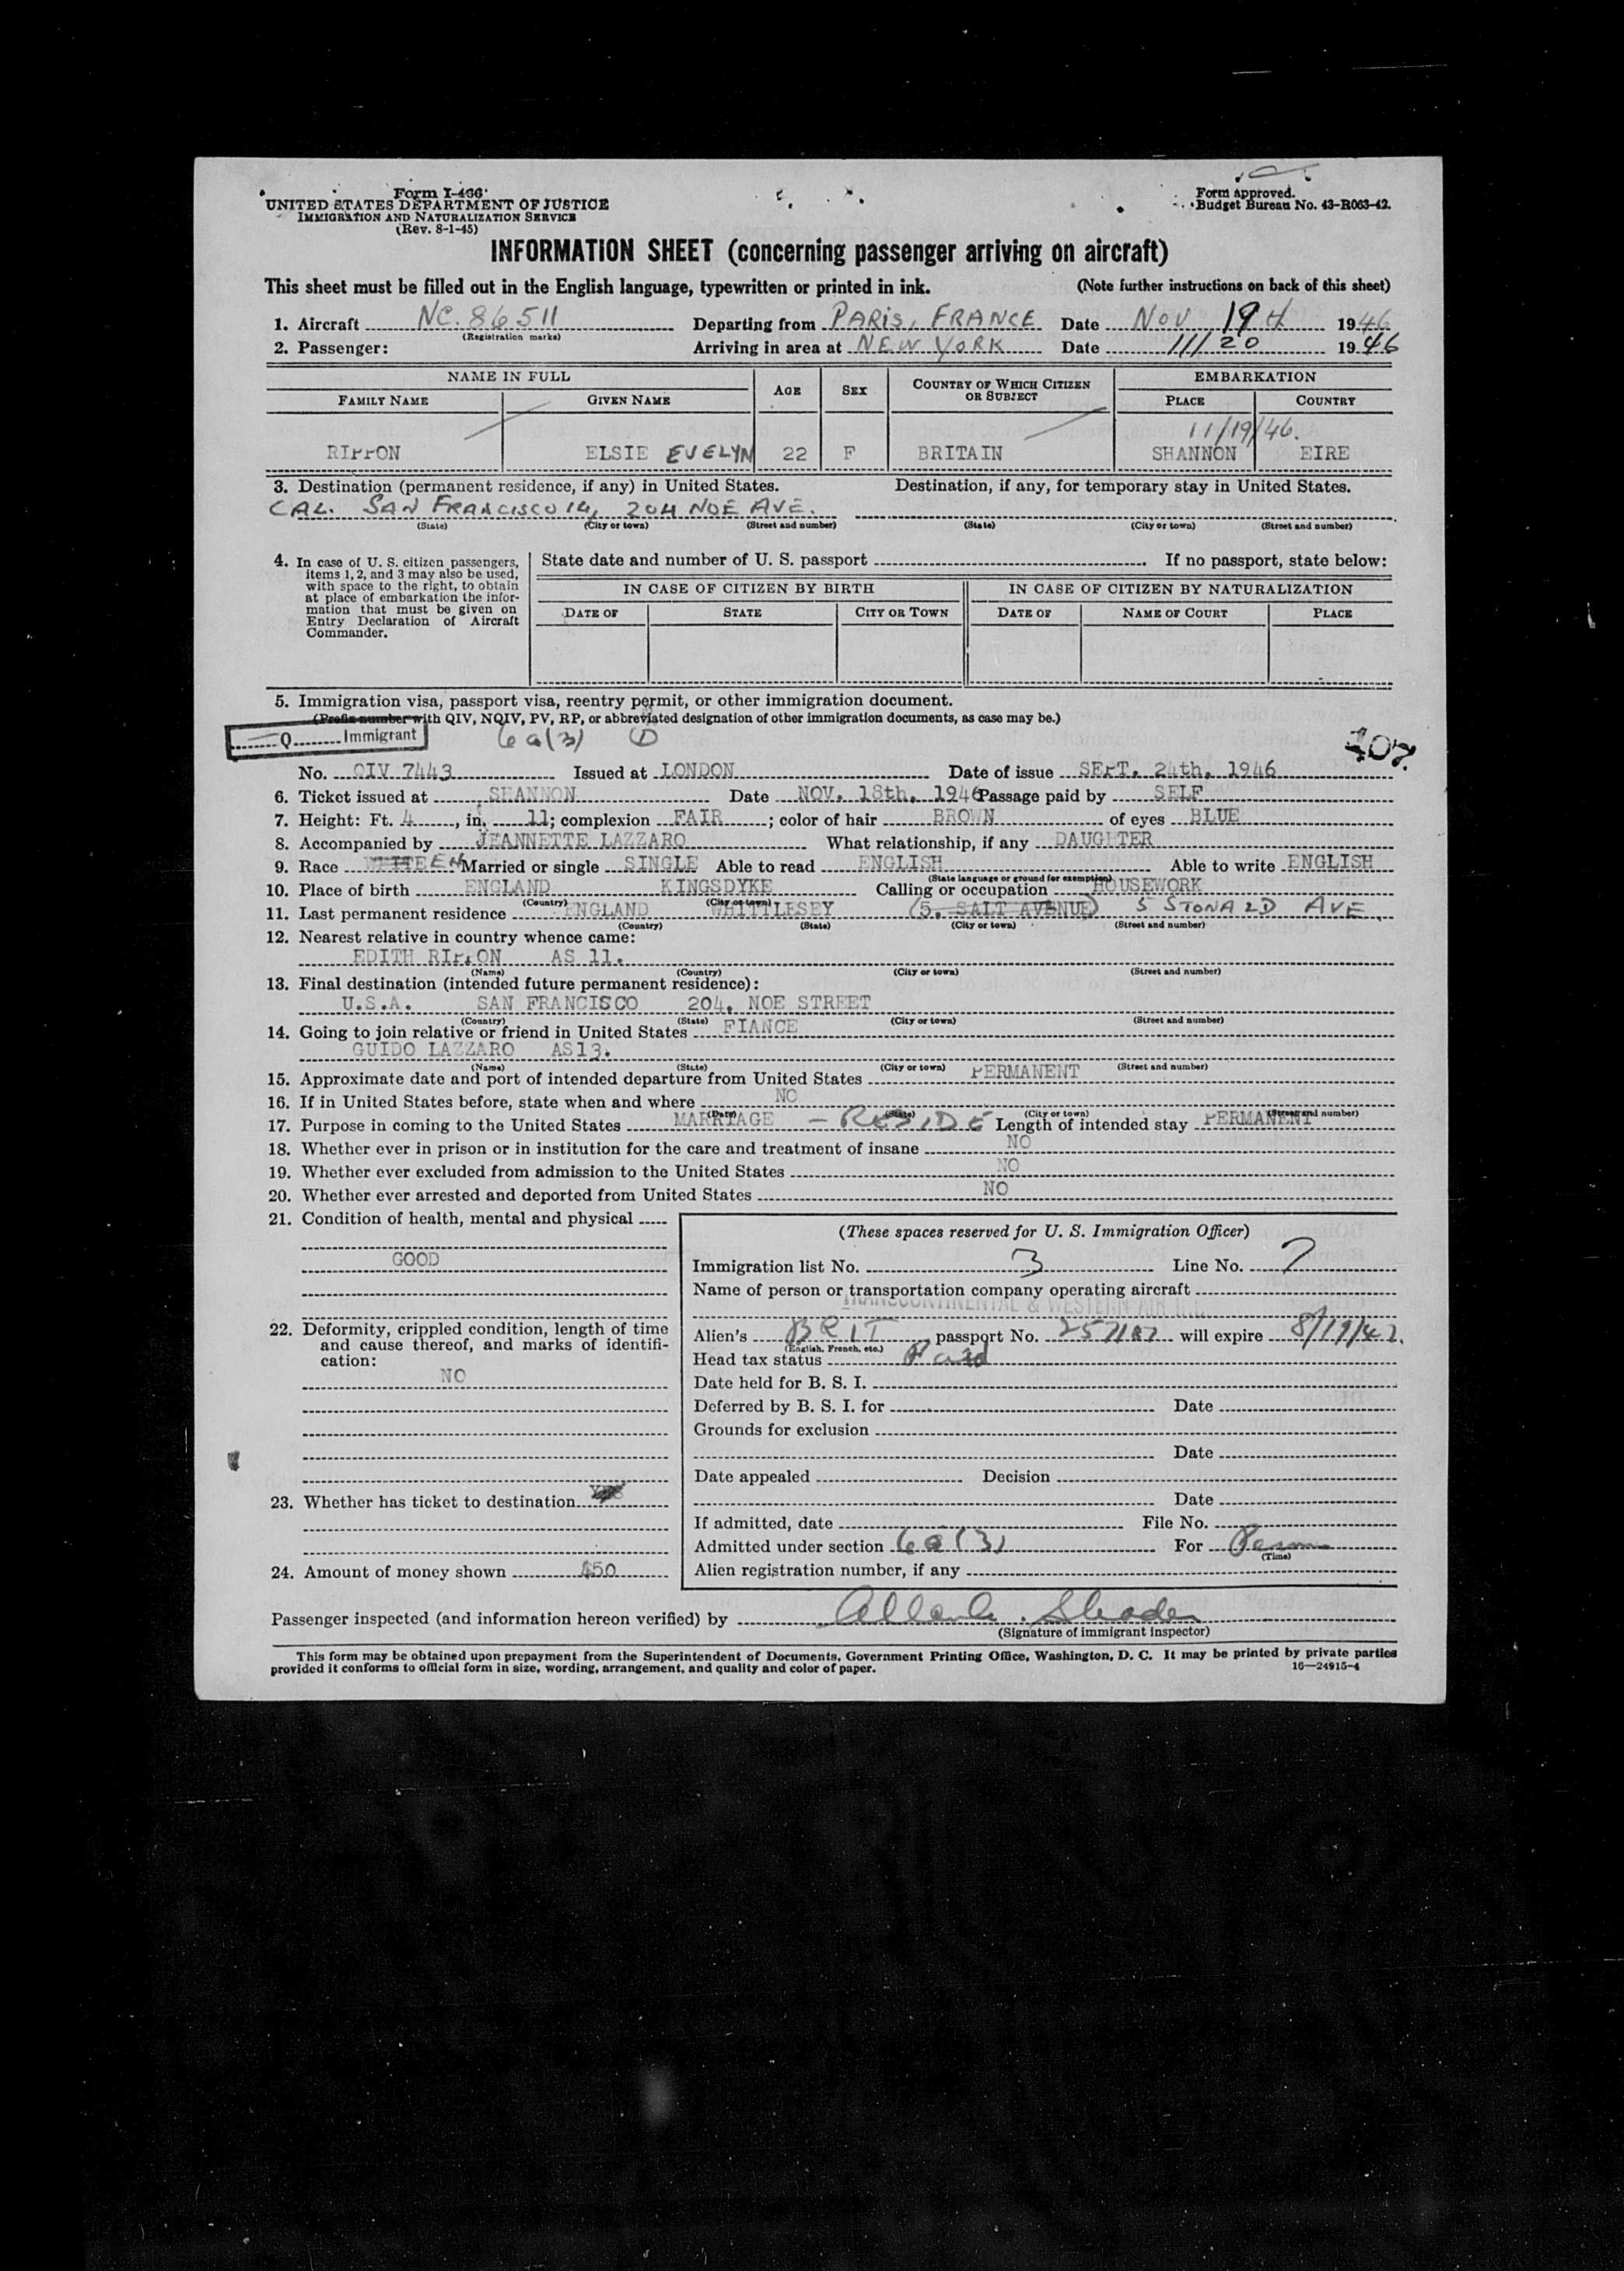 Form I-466
UNITED STATES DEPARTMENT OF JUSTICE
IMMIGRATION AND NATURALIZATION SERVICE
(Rev. 8-1-45)
Form approved.
Budget Bureau No. 43-R063-42.
INFORMATION SHEET (concerning passenger arriving on aircraft)
This sheet must be filled out in the English language, typewritten or printed in ink. (Note further instructions on back of this sheet)
1. Aircraft NC. 86511 Departing from PARIS, FRANCE Date NOV 19 1946
(Registration marks)
2. Passenger: Arriving in area at NEW YORK Date 11/20 1946
NAME IN FULL AGE SEX COUNTRY OF WHICH CITIZEN OR SUBJECT EMBARKATION
FAMILY NAME GIVEN NAME PLACE COUNTRY
11/19/46.
RIPPON ELSIE EVELYN 22 F BRITAIN SHANNON EIRE
3. Destination (permanent residence, if any) in United States. Destination, if any, for temporary stay in United States.
CAL. SAN FRANCISCO 14, 204 NOE AVE.
(State) (City or town) (Street and number) (State) (City or town) (Street and number)
4. In case of U. S. citizen passengers, items 1, 2, and 3 may also be used, with space to the right, to obtain at place of embarkation the information that must be given on Entry Declaration of Aircraft Commander.
State date and number of U. S. passport If no passport, state below:
IN CASE OF CITIZEN BY BIRTH IN CASE OF CITIZEN BY NATURALIZATION
DATE OF STATE CITY OR TOWN DATE OF NAME OF COURT PLACE
5. Immigration visa, passport visa, reentry permit, or other immigration document.
(Prefix number with QIV, NQIV, PV, RP, or abbreviated designation of other immigration documents, as case may be.)
Q Immigrant 6a(3)
No. QIV 7443 Issued at LONDON Date of issue SEPT. 24th, 1946
6. Ticket issued at SHANNON Date NOV. 18th, 1946 Passage paid by SELF
7. Height: Ft. 4, in. 11; complexion FAIR; color of hair BROWN of eyes BLUE
8. Accompanied by JEANNETTE LAZZARO What relationship, if any DAUGHTER
9. Race WHITE EN Married or single SINGLE Able to read ENGLISH Able to write ENGLISH
(State language or ground for exemption)
10. Place of birth ENGLAND KINGSDYKE Calling or occupation HOUSEWORK
(Country) (City or town)
11. Last permanent residence ENGLAND WHITTLESEY (5. SALT AVENUE) 5 STONALD AVE
(Country) (State) (City or town) (Street and number)
12. Nearest relative in country whence came:
EDITH RIPPON AS 11.
(Name) (Country) (City or town) (Street and number)
13. Final destination (intended future permanent residence):
U.S.A. SAN FRANCISCO 204, NOE STREET
(Country) (State) (City or town) (Street and number)
14. Going to join relative or friend in United States FIANCE
GUIDO LAZZARO AS13.
(Name) (State) (City or town) (Street and number)
15. Approximate date and port of intended departure from United States PERMANENT
16. If in United States before, state when and where NO
(Date) (State) (City or town) (Street and number)
17. Purpose in coming to the United States MARRIAGE - RESIDE Length of intended stay PERMANENT
18. Whether ever in prison or in institution for the care and treatment of insane NO
19. Whether ever excluded from admission to the United States NO
20. Whether ever arrested and deported from United States NO
21. Condition of health, mental and physical
GOOD
22. Deformity, crippled condition, length of time and cause thereof, and marks of identification:
NO
23. Whether has ticket to destination YES
24. Amount of money shown $50
(These spaces reserved for U. S. Immigration Officer)
Immigration list No. 3 Line No. 7
Name of person or transportation company operating aircraft
TRANSCONTINENTAL & WESTERN AIR INC.
Alien's BRIT passport No. will expire
(English, French, etc.)
Head tax status Paid
Date held for B. S. I.
Deferred by B. S. I. for Date
Grounds for exclusion
Date
Date appealed Decision
Date
If admitted, date File No.
Admitted under section 6a(3) For Perm
(Time)
Alien registration number, if any
Passenger inspected (and information hereon verified) by
(Signature of immigrant inspector)
This form may be obtained upon prepayment from the Superintendent of Documents, Government Printing Office, Washington, D. C. It may be printed by private parties
provided it conforms to official form in size, wording, arrangement, and quality and color of paper. 16—24915-4